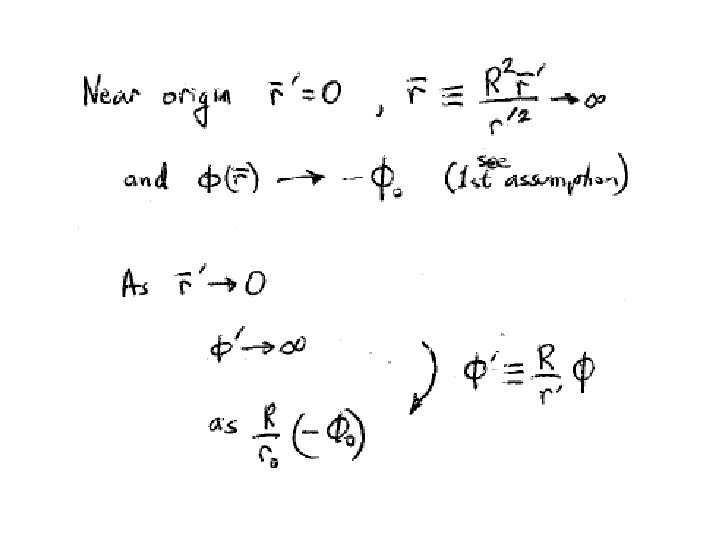 Near origin r̄′=0 , r̄ ≡ R²r̄′/r′² → ∞
and ϕ(r̄) → −ϕ₀ (see 1st assumption)
As r̄′→0
ϕ′→∞
ϕ′≡ R/r′ ϕ
as R/r₀ (−Φ₀)